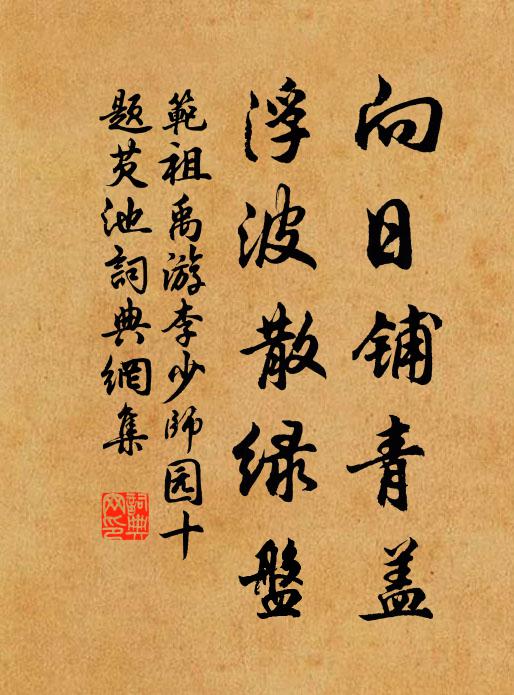 向日铺青盖
浮波散绿盤
範祖禹游李少师园十
题芡池詞典網集
詞典
网印